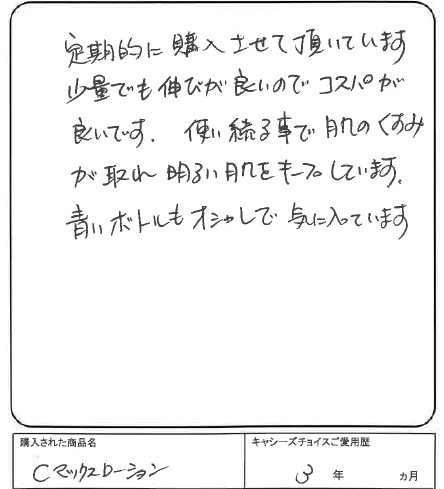 定期的に購入させて頂いています
少量でも伸びが良いので コスパが
良いです. 使い続る事で 肌のくすみ
が取れ 明るい肌をキープしています.
青いボトルもオシャレで 気に入っています
購入された商品名
キャシーズチョイスご愛用歴
Cマックスローション
3 年 ヵ月